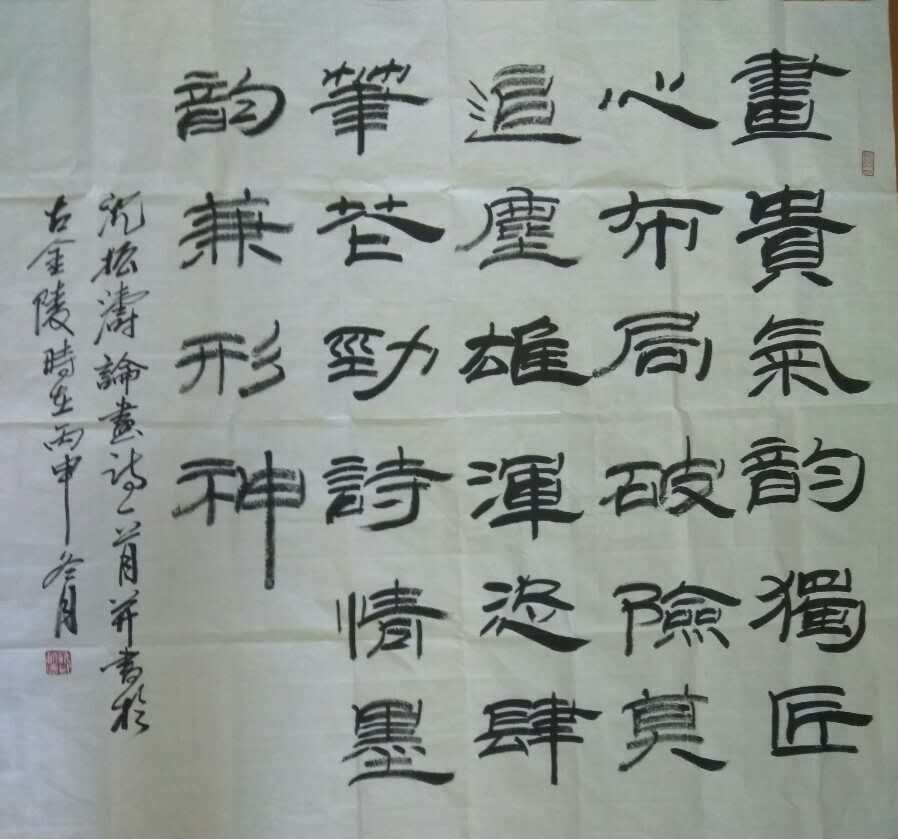 畫貴氣韵獨匠
心布局破險莫
追塵雄渾恣肆
筆芒勁詩情墨
韵兼形神
濤論畫詩一首并書於
古金陵時在丙申冬月